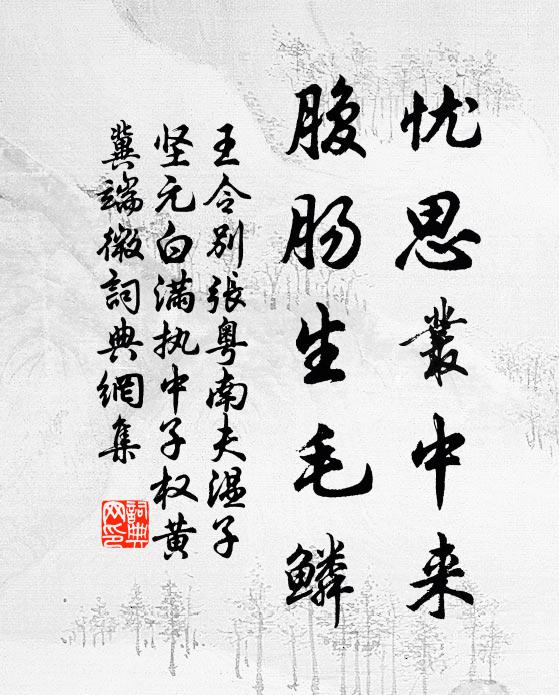 忧思丛中来
腹肠生毛鳞
王令别張粤南夫温子
坚元白满执中子权黄
冀端微詞典網集
詞典
网印